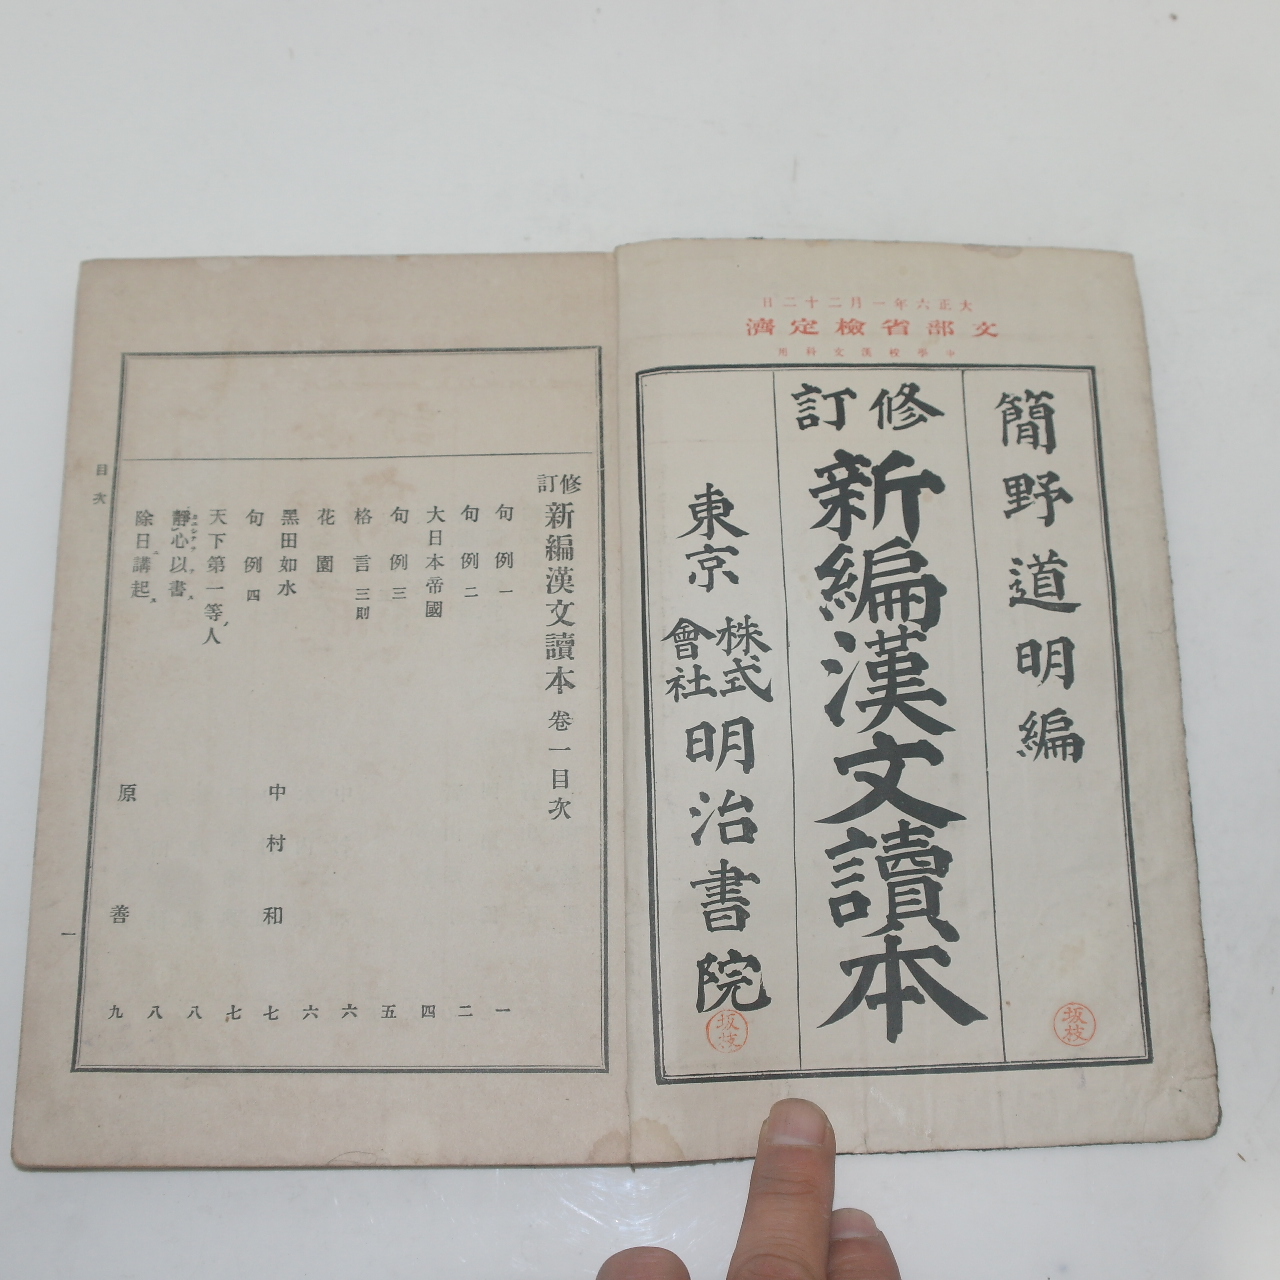 大正六年一月二十二日
文部省檢定濟
中學校漢文科用
簡野道明編
修訂
新編漢文讀本
東京
株式會社
明治書院
坂枝
坂枝
修訂新編漢文讀本卷一目次
句例一 一
句例二 二
大日本帝國 四
句例三 五
格言三則 六
花園 六
黑田如水 中村和 七
句例四 七
天下第一等人 八
靜心以書 八
除日講起 原善 九
目次
一